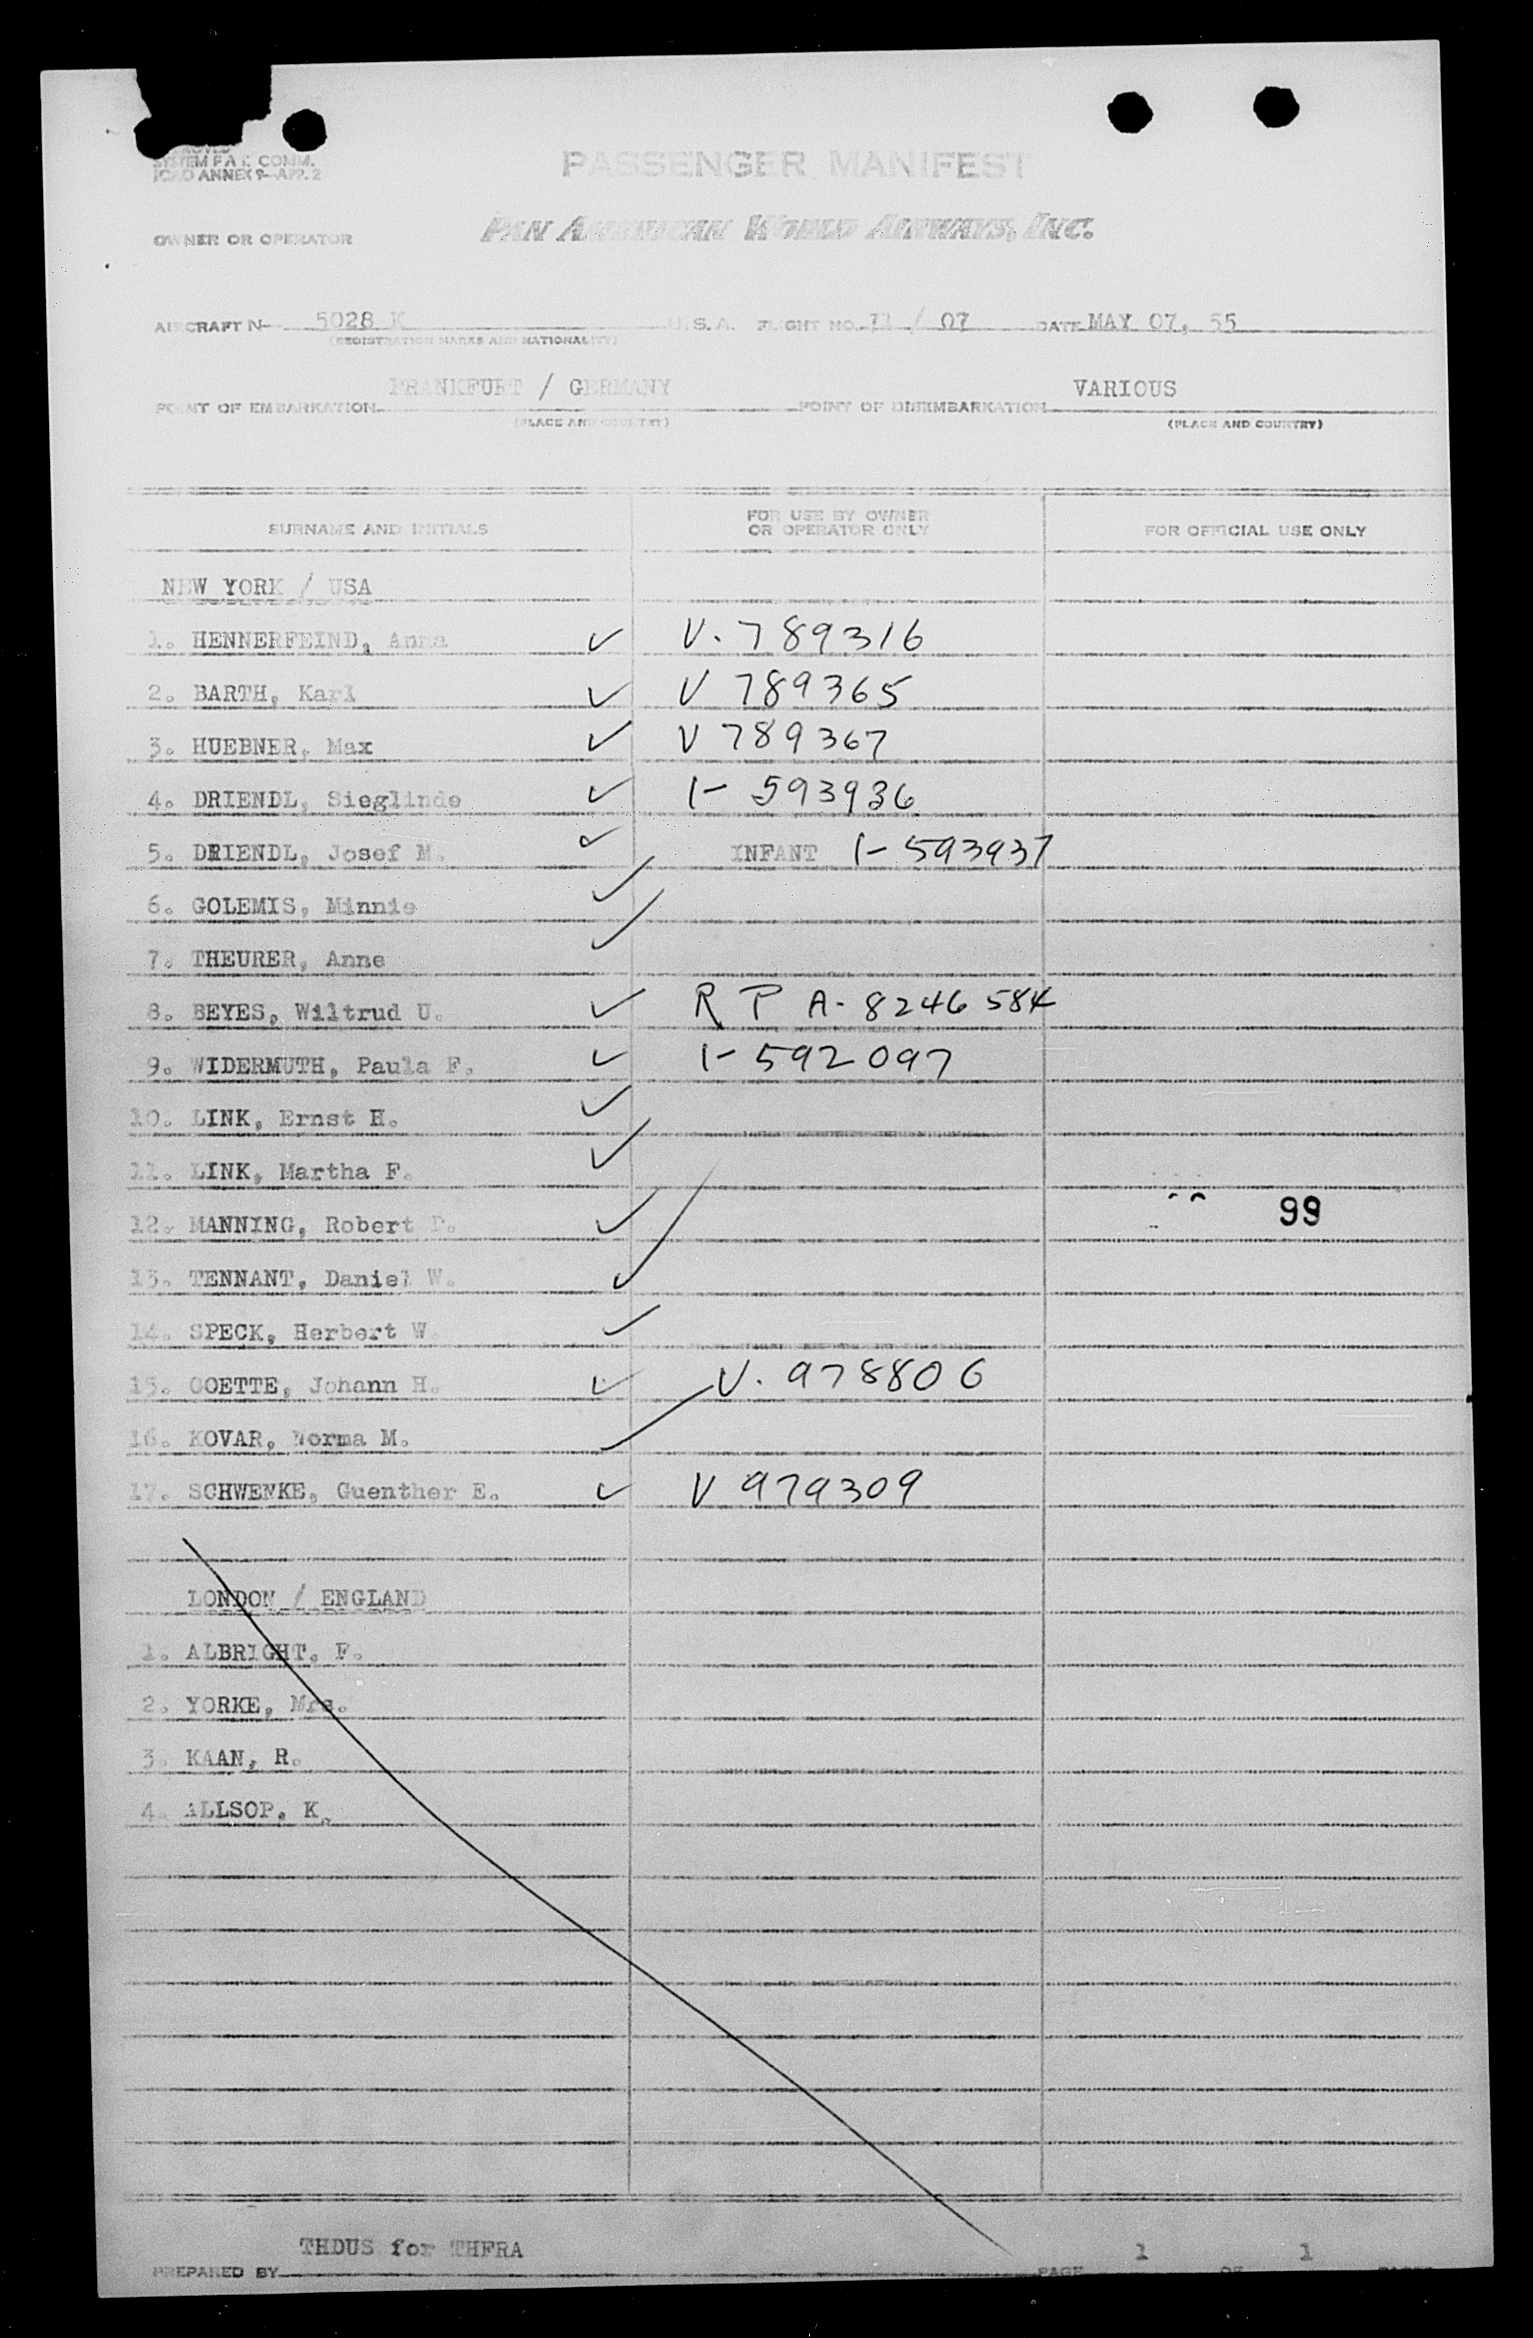 SYSTEM F.A.L. COMM.
ICAO ANNEX 9-APP. 2
PASSENGER MANIFEST
OWNER OR OPERATOR PAN AMERICAN WORLD AIRWAYS, INC.
AIRCRAFT N- 5028 K U.S.A. FLIGHT NO. 71 / 07 DATE MAY 07, 55
(REGISTRATION MARKS AND NATIONALITY)
POINT OF EMBARKATION FRANKFURT / GERMANY POINT OF DISEMBARKATION VARIOUS
(PLACE AND COUNTRY) (PLACE AND COUNTRY)
SURNAME AND INITIALS FOR USE BY OWNER OR OPERATOR ONLY FOR OFFICIAL USE ONLY
NEW YORK / USA
1. HENNERFEIND, Anna ✓ V. 789316
2. BARTH, Karl ✓ V 789365
3. HUEBNER, Max ✓ V 789367
4. DRIENDL, Sieglinde ✓ 1- 593936
5. DRIENDL, Josef M. ✓ INFANT 1- 593937
6. GOLEMIS, Minnie ✓
7. THEURER, Anne ✓
8. BEYES, Wiltrud U. ✓ R P A- 8246 584
9. WIDERMUTH, Paula F. ✓ 1- 592 097
10. LINK, Ernst H. ✓
11. LINK, Martha F. ✓
12. MANNING, Robert ✓ 99
13. TENNANT, Daniel W. ✓
14. SPECK, Herbert W. ✓
15. GOETTE, Johann H. ✓ V. 978806
16. KOVAR, Norma M. ✓
17. SCHWENKE, Guenther E. ✓ V 979309
LONDON / ENGLAND
1. ALBRIGHT, F.
2. YORKE, Mrs.
3. KAAN, R.
4. ALLSOP, K.
PREPARED BY THDUS for THFRA PAGE 1 OF 1 PAGES